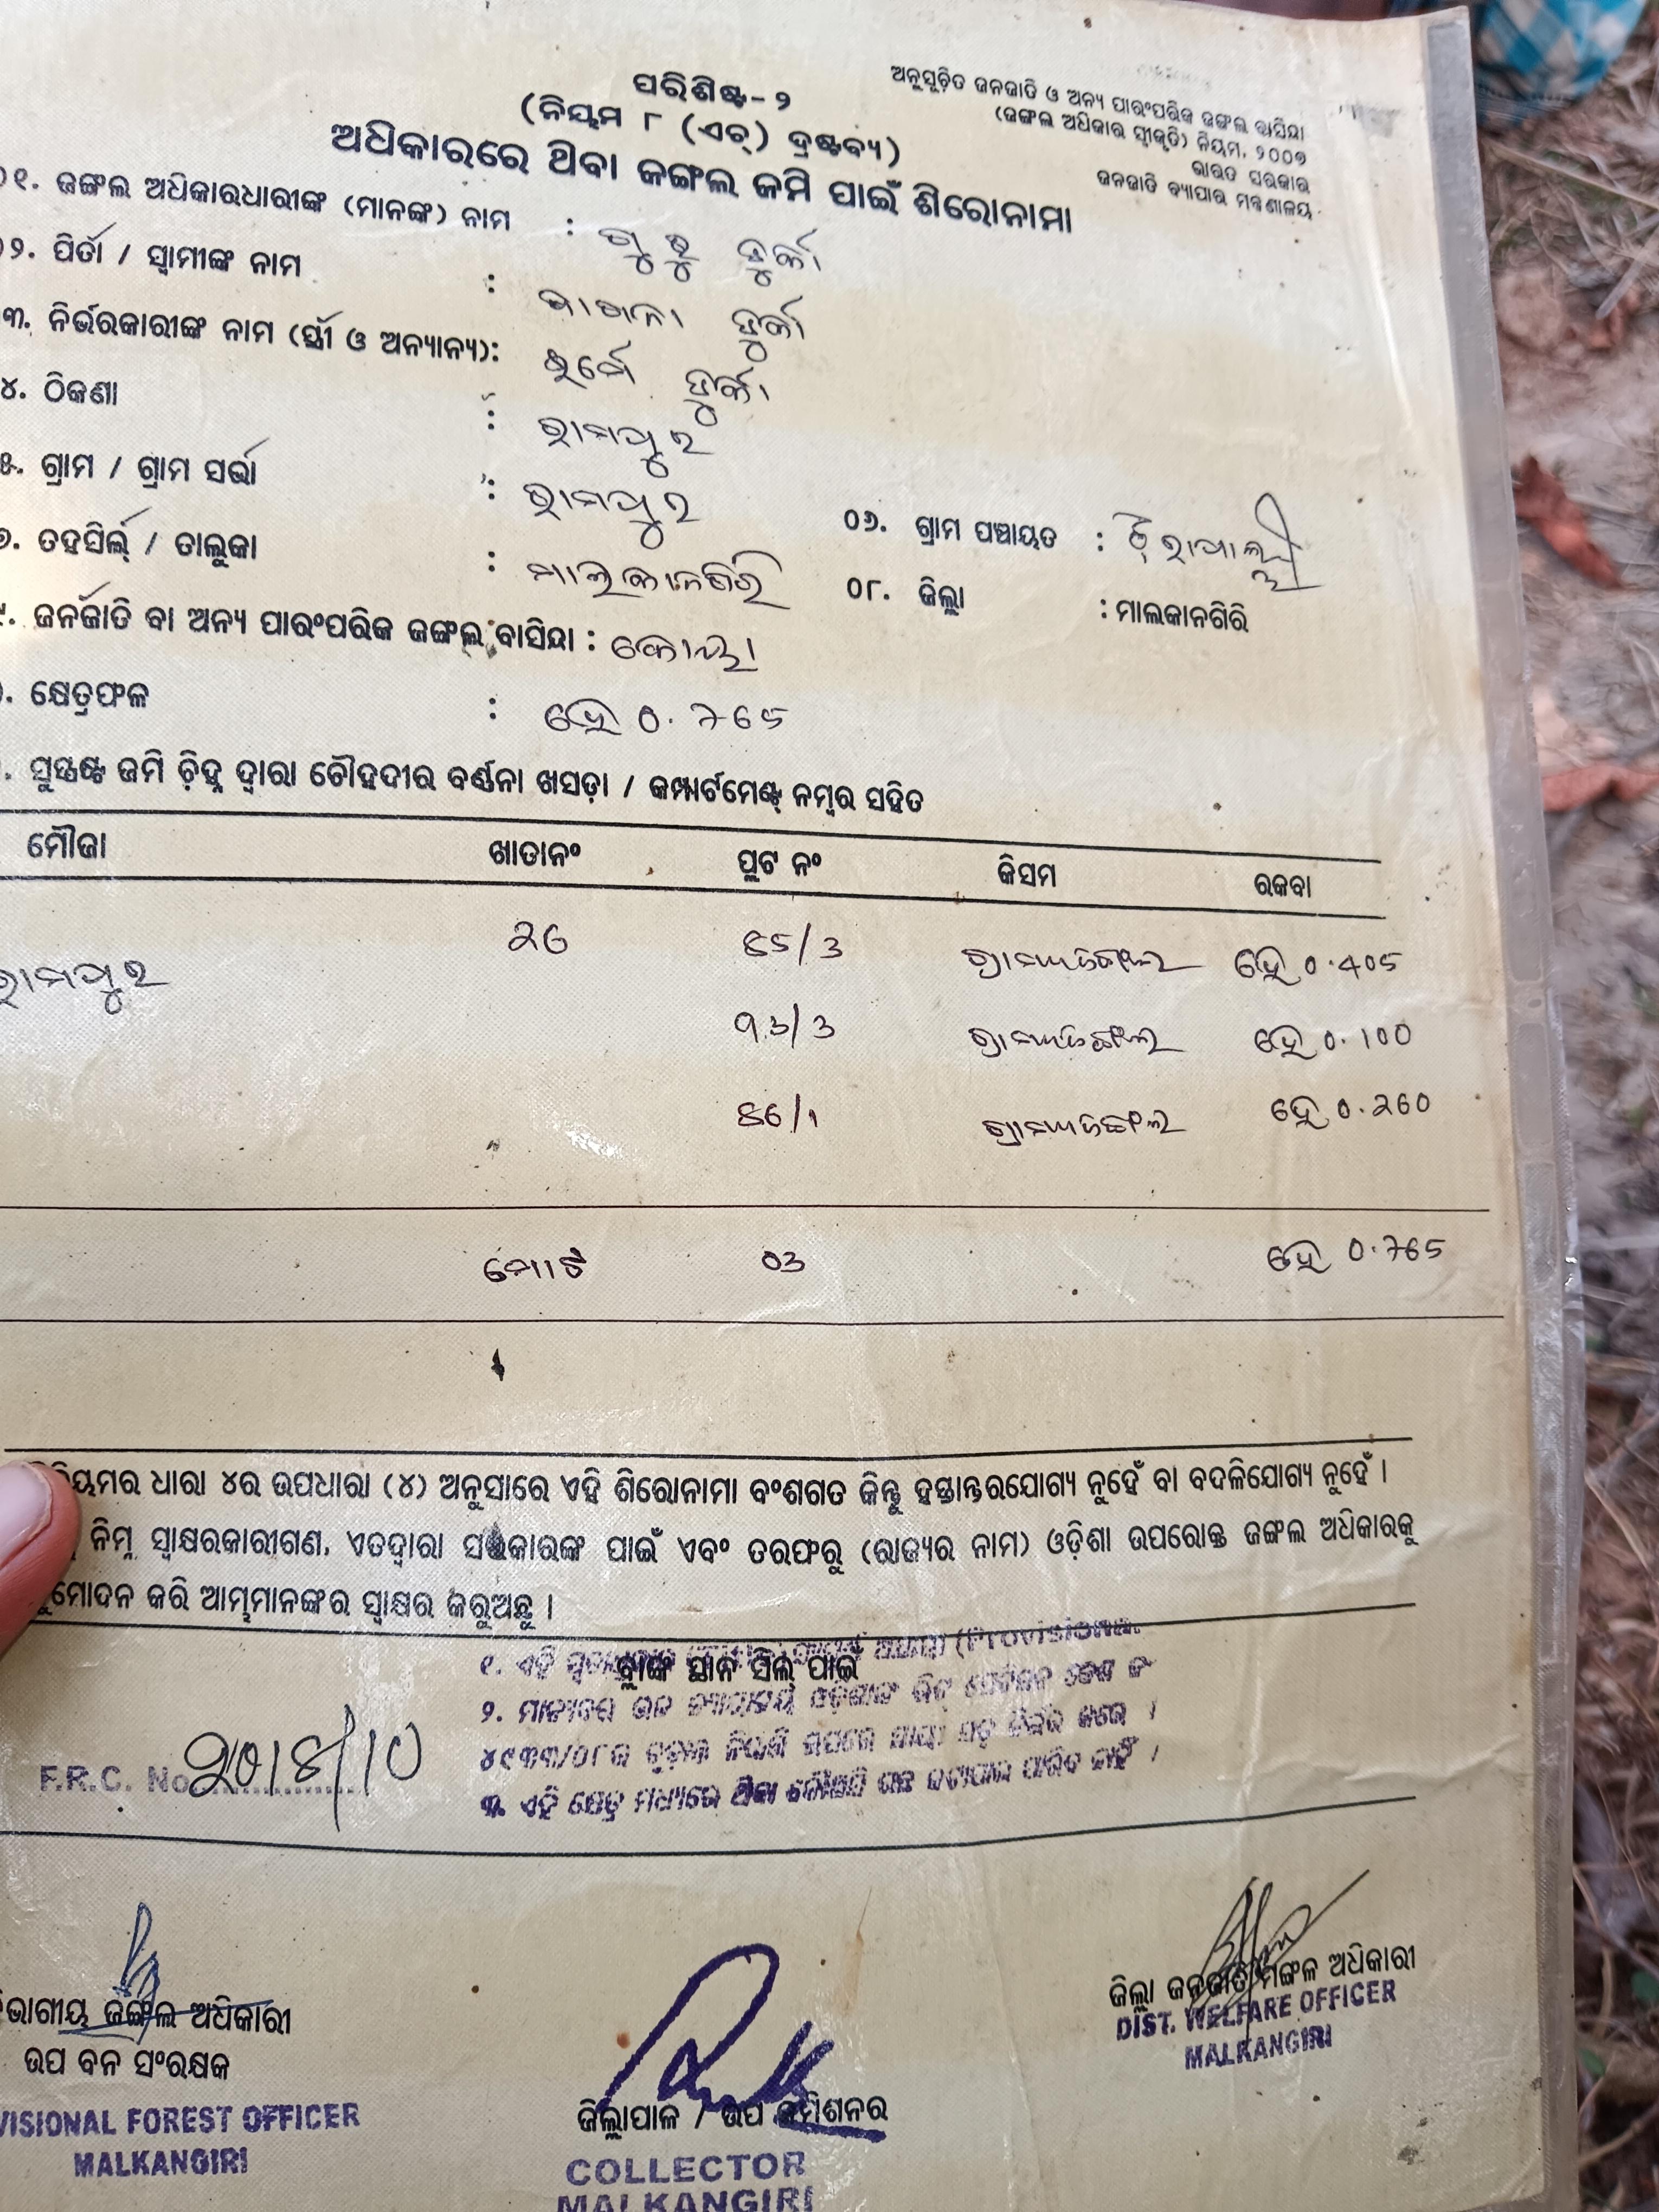 ପରିଶିଷ୍ଟ-୨
(ନିୟମ ୮ (ଏଚ୍) ଦ୍ରଷ୍ଟବ୍ୟ)
ଅନୁସୂଚିତ ଜନଜାତି ଓ ଅନ୍ୟ ପାରଂପରିକ ଜଙ୍ଗଲ ବାସିନ୍ଦା
(ଜଙ୍ଗଲ ଅଧିକାର ସ୍ୱୀକୃତି) ନିୟମ, ୨୦୦୭
ଭାରତ ସରକାର
ଜନଜାତି ବ୍ୟାପାର ମନ୍ତ୍ରଣାଳୟ
ଅଧିକାରରେ ଥିବା ଜଙ୍ଗଲ ଜମି ପାଇଁ ଶିରୋନାମା
୦୧. ଜଙ୍ଗଲ ଅଧିକାରଧାରୀଙ୍କ (ମାନଙ୍କ) ନାମ :
୨. ପିତା / ସ୍ୱାମୀଙ୍କ ନାମ :
୩. ନିର୍ଭରକାରୀଙ୍କ ନାମ (ସ୍ତ୍ରୀ ଓ ଅନ୍ୟାନ୍ୟ):
୪. ଠିକଣା : ରାମପୁର
୫. ଗ୍ରାମ / ଗ୍ରାମ ସଭା : ରାମପୁର
୦୬. ଗ୍ରାମ ପଞ୍ଚାୟତ :
୭. ତହସିଲ୍ / ତାଲୁକା : ମାଲକାନଗିରି
୦୮. ଜିଲ୍ଲା : ମାଲକାନଗିରି
୯. ଜନଜାତି ବା ଅନ୍ୟ ପାରଂପରିକ ଜଙ୍ଗଲ ବାସିନ୍ଦା : କୋୟା
କ୍ଷେତ୍ରଫଳ : ହେ 0.765
ସୁସ୍ପଷ୍ଟ ଜମି ଚିହ୍ନ ଦ୍ୱାରା ଚୌହଦୀର ବର୍ଣ୍ଣନା ଖସଡ଼ା / କମ୍ପାର୍ଟମେଣ୍ଟ୍ ନମ୍ବର ସହିତ
ମୌଜା ଖାତାନଂ ପ୍ଲଟ ନଂ କିସମ ରକବା
ରାମପୁର 26 85/3 ଗ୍ରାମ୍ୟଜଙ୍ଗଲ ହେ 0.405
93/3 ଗ୍ରାମ୍ୟଜଙ୍ଗଲ ହେ 0.100
86/1 ଗ୍ରାମ୍ୟଜଙ୍ଗଲ ହେ 0.260
ମୋଟ 03 ହେ 0.765
ଧାରା ୪ର ଉପଧାରା (୪) ଅନୁସାରେ ଏହି ଶିରୋନାମା ବଂଶଗତ କିନ୍ତୁ ହସ୍ତାନ୍ତରଯୋଗ୍ୟ ନୁହେଁ ବା ବଦଳିଯୋଗ୍ୟ ନୁହେଁ ।
ନିମ୍ନ ସ୍ୱାକ୍ଷରକାରୀଗଣ, ଏତଦ୍ୱାରା ସରକାରଙ୍କ ପାଇଁ ଏବଂ ତରଫରୁ (ରାଜ୍ୟର ନାମ) ଓଡ଼ିଶା ଉପରୋକ୍ତ ଜଙ୍ଗଲ ଅଧିକାରକୁ
ମୋଦନ କରି ଆମ୍ଭମାନଙ୍କର ସ୍ୱାକ୍ଷର କରୁଅଛୁ ।
ବ୍ଲାଙ୍କ ସ୍ଥାନ ସିଲ୍ ପାଇଁ
୧. ଏହି
୨. ମାନ୍ୟବର ଉଚ୍ଚ
୪୯୩୩/୦୮ର ଚୂଡ଼ାନ୍ତ ନିଷ୍ପତ୍ତି ଉପରେ
୩. ଏହି କ୍ଷେତ୍ର ମଧ୍ୟରେ ଥିବା କୌଣସି ଗଛ
F.R.C. No. 2018/10
ଭାଗୀୟ ଜଙ୍ଗଲ ଅଧିକାରୀ
ଉପ ବନ ସଂରକ୍ଷକ
VISIONAL FOREST OFFICER
MALKANGIRI
ଜିଲ୍ଲାପାଳ / ଉପ କମିଶନର
COLLECTOR
MALKANGIRI
ଜିଲ୍ଲା ଜନଜାତି ମଙ୍ଗଳ ଅଧିକାରୀ
DIST. WELFARE OFFICER
MALKANGIRI